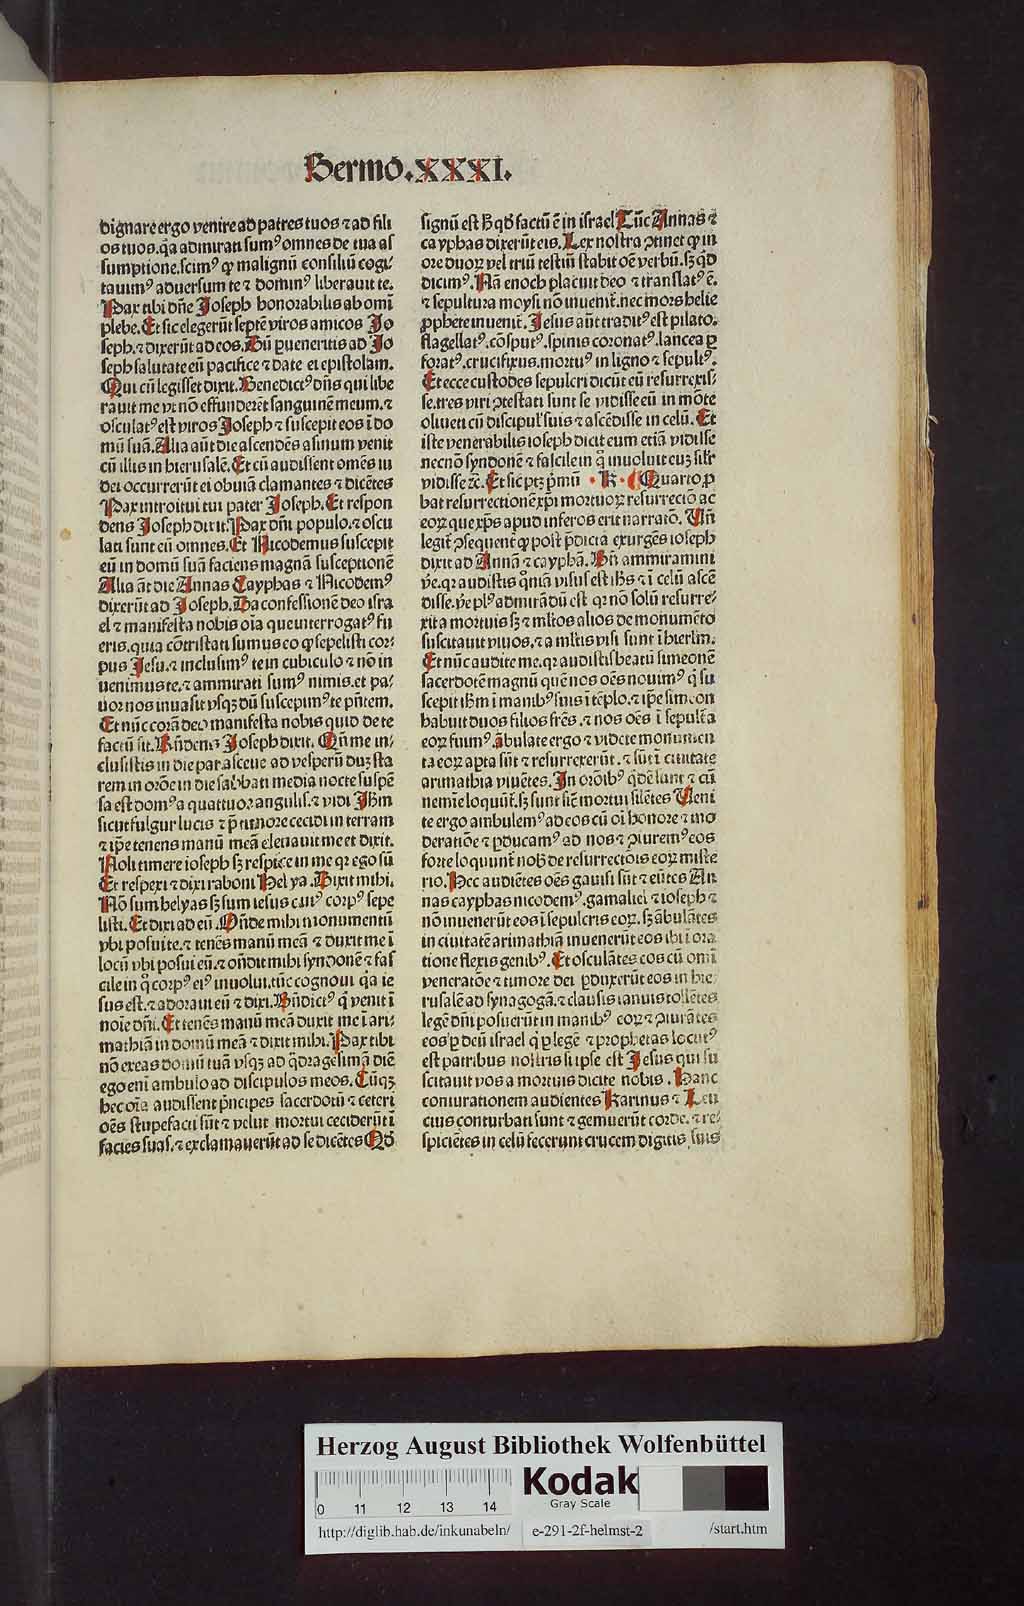 Sermo.XXXI.
dignare ergo venire ad patres tuos ⁊ ad fili
os tuos.q̃a admirati sumꝰ omnes de tua as
sumptione.scimꝰ ꝙ malignũ consiliũ cogi⸗
tauimꝰ aduersum te ⁊ dominꝰ liberauit te.
Pax tibi dñe Joseph honorabilis ab omi
plebe.Et sic elegerũt septẽ viros amicos Jo
seph.⁊ dixerũt ad eos.Dũ ꝑueneritis ad Jo
seph salutate eũ pacifice ⁊ date ei epistolam.
Qui cũ legisset dixit.Benedictꝰ dñs qui libe
rauit me vt nõ effunderẽt sanguinẽ meum.⁊
osculatꝰ est viros Joseph ⁊ suscepit eos ĩ do
mũ suã.Alia aũt die ascendẽs asinum venit
cũ illis in hierusalẽ.Et cũ audissent omẽs iu
dei occurrerũt ei obuiã clamantes ⁊ dicẽtes
Pax introitui tui pater Joseph.Et respon
dens Joseph dixit.Pax dñi populo.⁊ oscu
lati sunt eũ omnes.Et Nicodemus suscepit
eũ in domũ suã faciens magnã susceptionẽ
Alia ãt die Annas Cayphas ⁊ Nicodemꝰ
dixerũt ad Joseph.Da confessionẽ deo isra
el ⁊ manifesta nobis oĩa que interrogatꝰ fu
eris.quia cõtristati sumus eo ꝙ sepelisti cor⸗
pus Jesu.⁊ inclusimꝰ te in cubiculo ⁊ nõ in
uenimus te.⁊ ammirati sumꝰ nimis.et pa⸗
uor nos inuasit vsqꝫ dũ suscepimꝰ te pñtem.
Et nũc corã deo manifesta nobis quid de te
factũ sit.Rñdens Joseph dixit. Qñ me in⸗
clusistis in die parasceue ad vesperũ duꝫ sta
rem in orõe in die sabbati media nocte suspẽ
sa est domꝰ a quattuor angulis.⁊ vidi Jhm
sicut fulgur lucis ⁊ p̃ timore cecidi in terram
⁊ ip̃e tenens manũ meã eleuauit me et dixit.
Noli timere ioseph sꝫ respice in me qr ego sũ
Et respexi ⁊ dixi raboni Helya.Dixit mihi.
Nõ sum helyas sꝫ sum iesus cuiꝰ corpꝰ sepe
listi.Et dixi ad eũ.Oñde mihi monumentũ
vbi posui te.⁊ tenẽs manũ meã ⁊ duxit me ĩ
locũ vbi posui eũ.⁊ oñdit mihi syndonẽ ⁊ fas
cile in q̃ corpꝰ eiꝰ inuolui.tũc cognoui q̃a ie
sus est.⁊ adoraui eũ ⁊ dixi.Bñdictꝰ q̃ venit ĩ
noĩe dñi.Et tenẽs manũ meã duxit me ĩ ari⸗
mathiã in domũ meã ⁊ dixit mihi.Pax tibi
nõ exeas domũ tuã vsqꝫ ad q̃dragesimã diẽ
ego eni ambulo ad discipulos meos.Cũqꝫ
hec oĩa audissent p̃ncipes sacerdotũ ⁊ ceteri
oẽs stupefacti sũt ⁊ velut mortui ceciderũt ĩ
facies suas.⁊ exclamauerũt ad se dicẽtes Qd̃
signũ est h̃ qd̃ factũ ẽ in israel Tũc Annas ⁊
cayphas dixerũt eis.Lex nostra ꝯtinet ꝙ in
ore duoꝝ vel triũ testiũ stabit oẽ verbũ.sꝫ qd̃
dicimꝰ.Nã enoch placuit deo ⁊ translatꝰ ẽ.
⁊ sepultura moysi nõ inuenit̃.nec mors helie
ꝓphete inuenit̃.Jesus aũt traditꝰ est pilato.
flagellatꝰ.cõsputꝰ.spinis coronatꝰ.lancea ꝑ
foratꝰ.crucifixus.mortuꝰ in ligno ⁊ sepultꝰ.
Et ecce custodes sepulcri dicũt eũ resurrexis⸗
se.tres viri ꝯtestati sunt se vidisse eũ in mõte
oliueti cũ discipul' suis ⁊ ascẽdisse in celũ.Et
iste venerabilis ioseph dicit eum etiã vidisse
necnõ syndonẽ ⁊ fascile in q̃ inuoluit euꝫ silr̃
vidisse ⁊c̃.Et sic ptꝫ p̃mũ .K. ¶ Quarto ꝓ
bat resurrectionẽ xp̃i mortuoꝝ resurrectio ac
eoꝝ que xp̃s apud inferos erit narratõ. Vñ
legit̃ ꝯsequent̃ ꝙ post p̃dicta exurgẽs ioseph
dixit ad Annã ⁊ caypha.Bñ ammiramini
v̾e.qr audistis qm̃a visus est ih̃s ⁊ ĩ celũ ascẽ
disse.v̾e plꝰ admirãdũ est qr nõ solũ resurre⸗
xit a mortuis sꝫ ⁊ ml̃tos alios de monumẽto
suscitauit viuos.⁊ a ml̃tis visi sunt ĩ hierlm̃.
Et nũc audite me.qr audistis beatũ simeonẽ
sacerdotẽ magnũ quẽ nos oẽs nouimꝰ q̃ su
scepit ih̃m ĩ manibꝰ suis ĩ tẽplo.⁊ ip̃e simeon
habuit duos filios fr̃es.⁊ nos oẽs ĩ sepult̃a
eoꝝ fuimꝰ.ãbulate ergo ⁊ videte monumen
ta eoꝝ ap̃ta sũt ⁊ resurrexerũt.⁊ sũt ĩ ciuitate
arimathia viuẽtes.In orõibꝰ q̃dẽ sunt ⁊ cũ
nemĩe loquũt̃.sꝫ sunt sic̃ mortui silẽtes Veni
te ergo ambulemꝰ ad eos cũ oĩ honore ⁊ mo
deratiõe ⁊ ꝑducamꝰ ad nos ⁊ ꝯiuremꝰ eos
forte loquunt̃ nob̃ de resurrectiõis eoꝝ miste
rio.Hec audiẽtes oẽs gauisi sũt ⁊ eũtes An
nas cayphas nicodemꝰ.gamaliel ⁊ ioseph ⁊
nõ inuenerũt eos ĩ sepulcris eoꝝ.sꝫ ãbulãtes
in ciuitatẽ arimathiã inuenerũt eos ibi ĩ ora
tione flexis genibꝰ.Et osculãtes eos cũ omi
veneratõe ⁊ timore dei ꝑduxerũt eos in hie
rusalẽ ad synagogã.⁊ clausis ianuis tollẽtes
legẽ dñi posuerũt in manibꝰ eoꝝ ⁊ ꝯiurãtes
eos ꝑ deũ israel q̃ ꝑ legẽ ⁊ prophetas locutꝰ
est patribus nostris si ipse est Jesus qui su
scitauit vos a mortuis dicite nobis.Hanc
coniurationem audientes Karinus ⁊ Leu
cius conturbati sunt ⁊ gemuerũt corde.⁊ re⸗
spiciẽtes in celũ fecerunt crucem digitis suis
Herzog August Bibliothek Wolfenbüttel
0 11 12 13 14
Kodak
Gray Scale
http://diglib.hab.de/inkunabeln/ e-291-2f-helmst-2 /start.htm